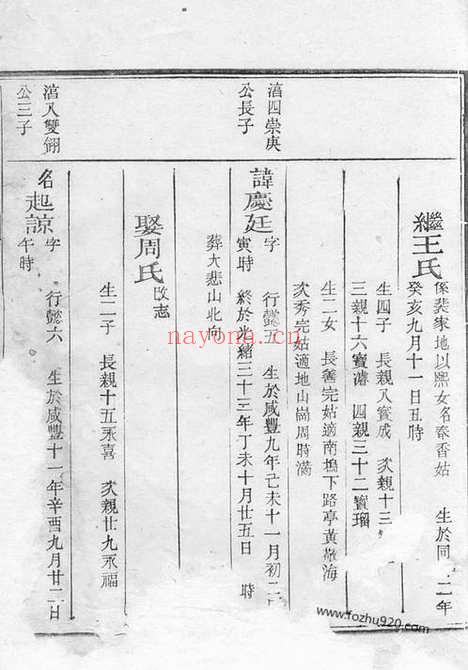 繼王氏
係裴家地以熙女名春香姑 生於同 二年
癸亥九月十一日丑時
生四子 長親八寶成 次親十三
三親十六寶濤 四親三十二寶瑠
生二女 長善完姑適南塢下路亭黃 海
次秀完姑適地山崗周時滿
滀四崇庚
公長子
諱慶廷
字 行懿五 生於咸豐九年己未十一月初二
寅時 終於光緒三十三年丁未十月廿五日 時
葬大悲山北向
娶周氏
改志
生二子 長親十五永喜 次親廿九永福
滀八雙翎
公三子
名起諒
字 行懿六 生於咸豐十一年辛酉九月廿二日
午時
nayona.cn
www.fozhu920.com